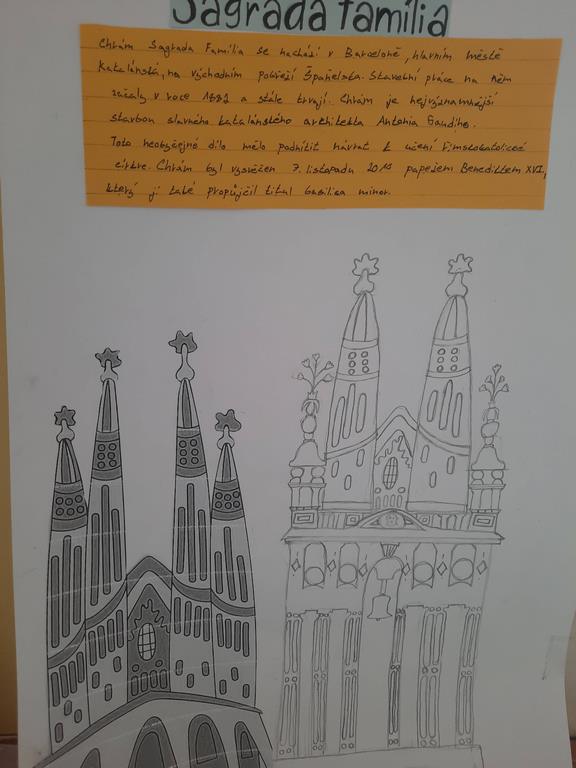 Sagrada família
Chrám Sagrada Família se nachází v Barceloně, hlavním městě
Katalánska, na východním pobřeží Španělska. Stavební práce na něm
začaly v roce 1882 a stále trvají. Chrám je nejvýznamnější
stavbou slavného katalánského architekta Antonia Gaudího.
Toto neobyčejné dílo mělo podnítit návrat k učení římskokatolické
církve. Chrám byl vysvěcen 7. listopadu 2010 papežem Benediktem XVI,
který jí také propůjčil titul basilica minor.